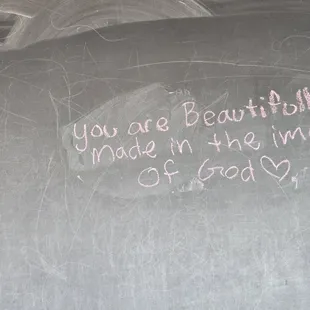 you are Beautifull
Made in the ima
of God ♡.